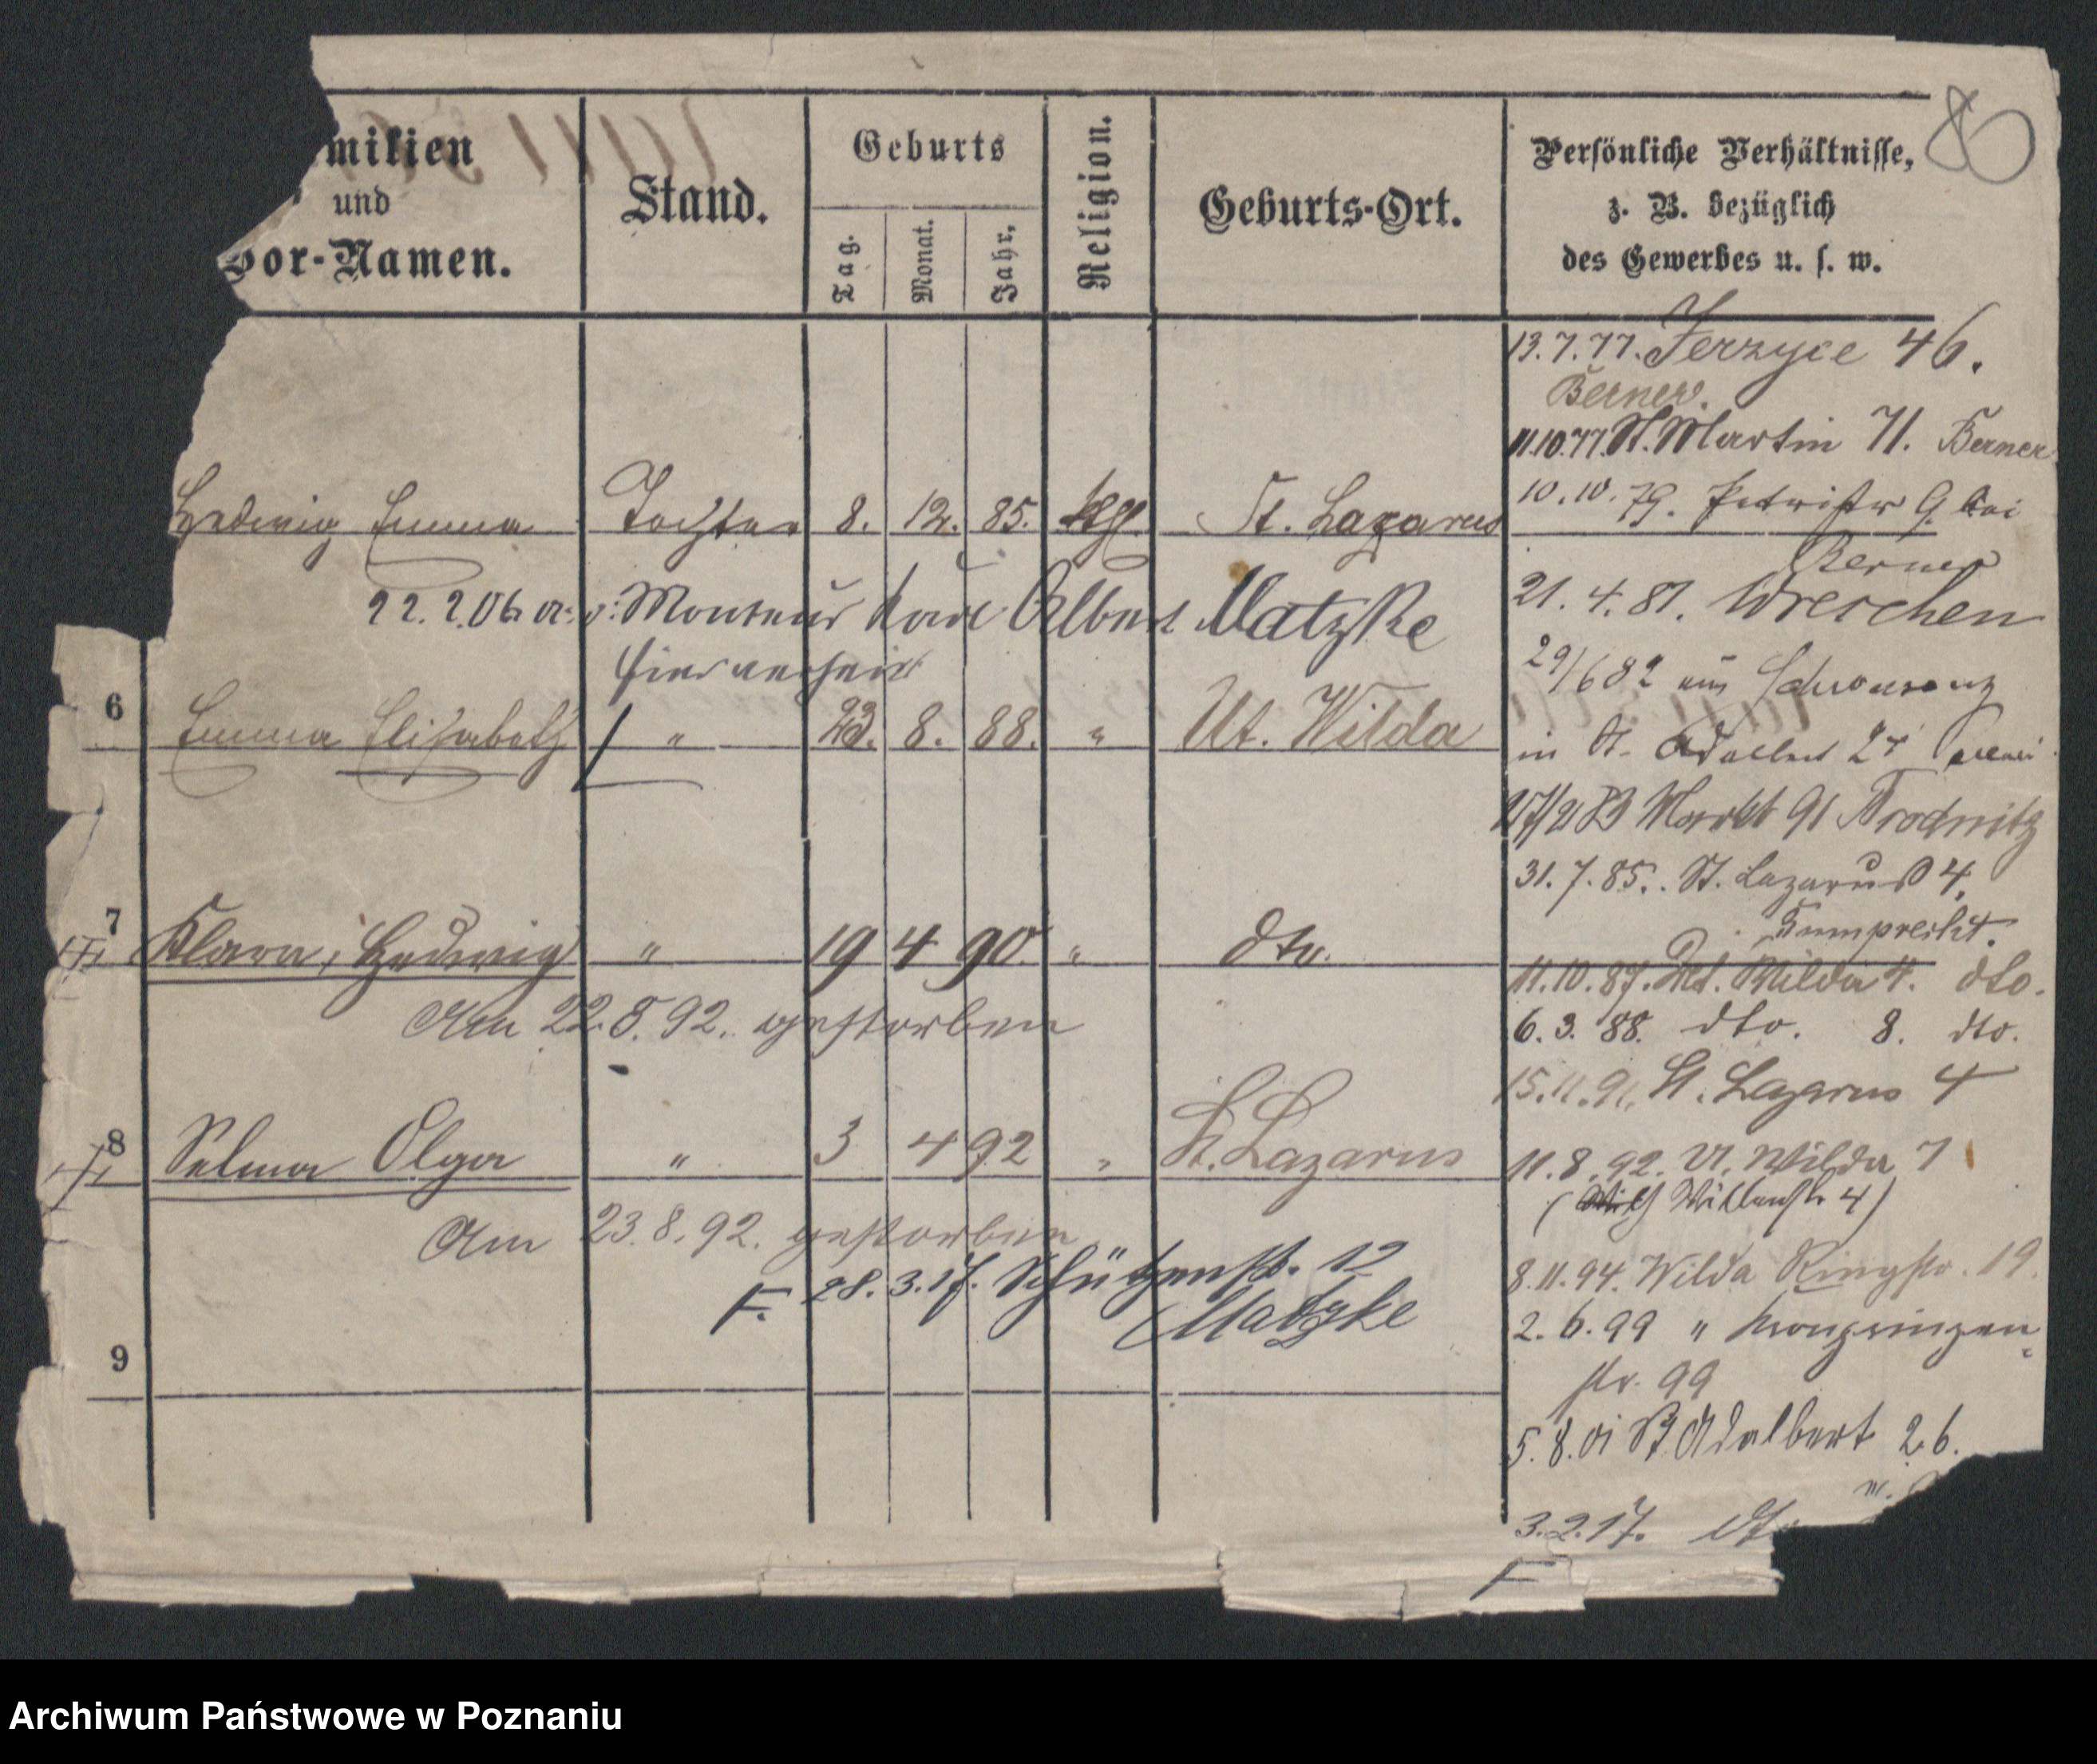 milien
und
Vor-Namen.
Stand.
Geburts
Tag.
Monat.
Jahr.
Religion.
Geburts-Ort.
Persönliche Verhältnisse,
z. B. bezüglich
des Gewerbes u. s. w.
80
Hedwig Emma Tochter 8. 12. 85. St. Lazarus
22.2.06 Monteur Karl Albert Matzke
hier verheir
6 Emma Elisabeth " 23. 8. 88. " Ut. Wilda
7 Klara, Hedwig " 19 4 90. " dto.
Am 22.8.92. gestorben
8 Selma Olga " 3 4 92 " St. Lazarus
Am 23.8.92. gestorben
F. 28.3.17. Schützenstr. 12
Matzke
9
13.7.77. Jerzyce 46.
Berner.
11.10.77. St. Martin 71. Berner
10.10.79. Petristr 9. bei
Berner
21.4.81. Wreschen
29/6 82 aus Schwersenz
in St. Adalbert 27
27/2 83 Markt 91 Brodnitz
31.7.85. St. Lazarus 4,
Gumprecht.
11.10.87. Ut. Wilda 4. dto.
6.3.88. dto. 8. dto.
15.11.91. St. Lazarus 4
11.8.92. Ut. Wilda 7
8.11.94. Wilda Ringstr. 19.
2.6.99 " Kronprinzen
str. 99
5.8.01 St Adalbert 26.
3.2.17.
F
Archiwum Państwowe w Poznaniu